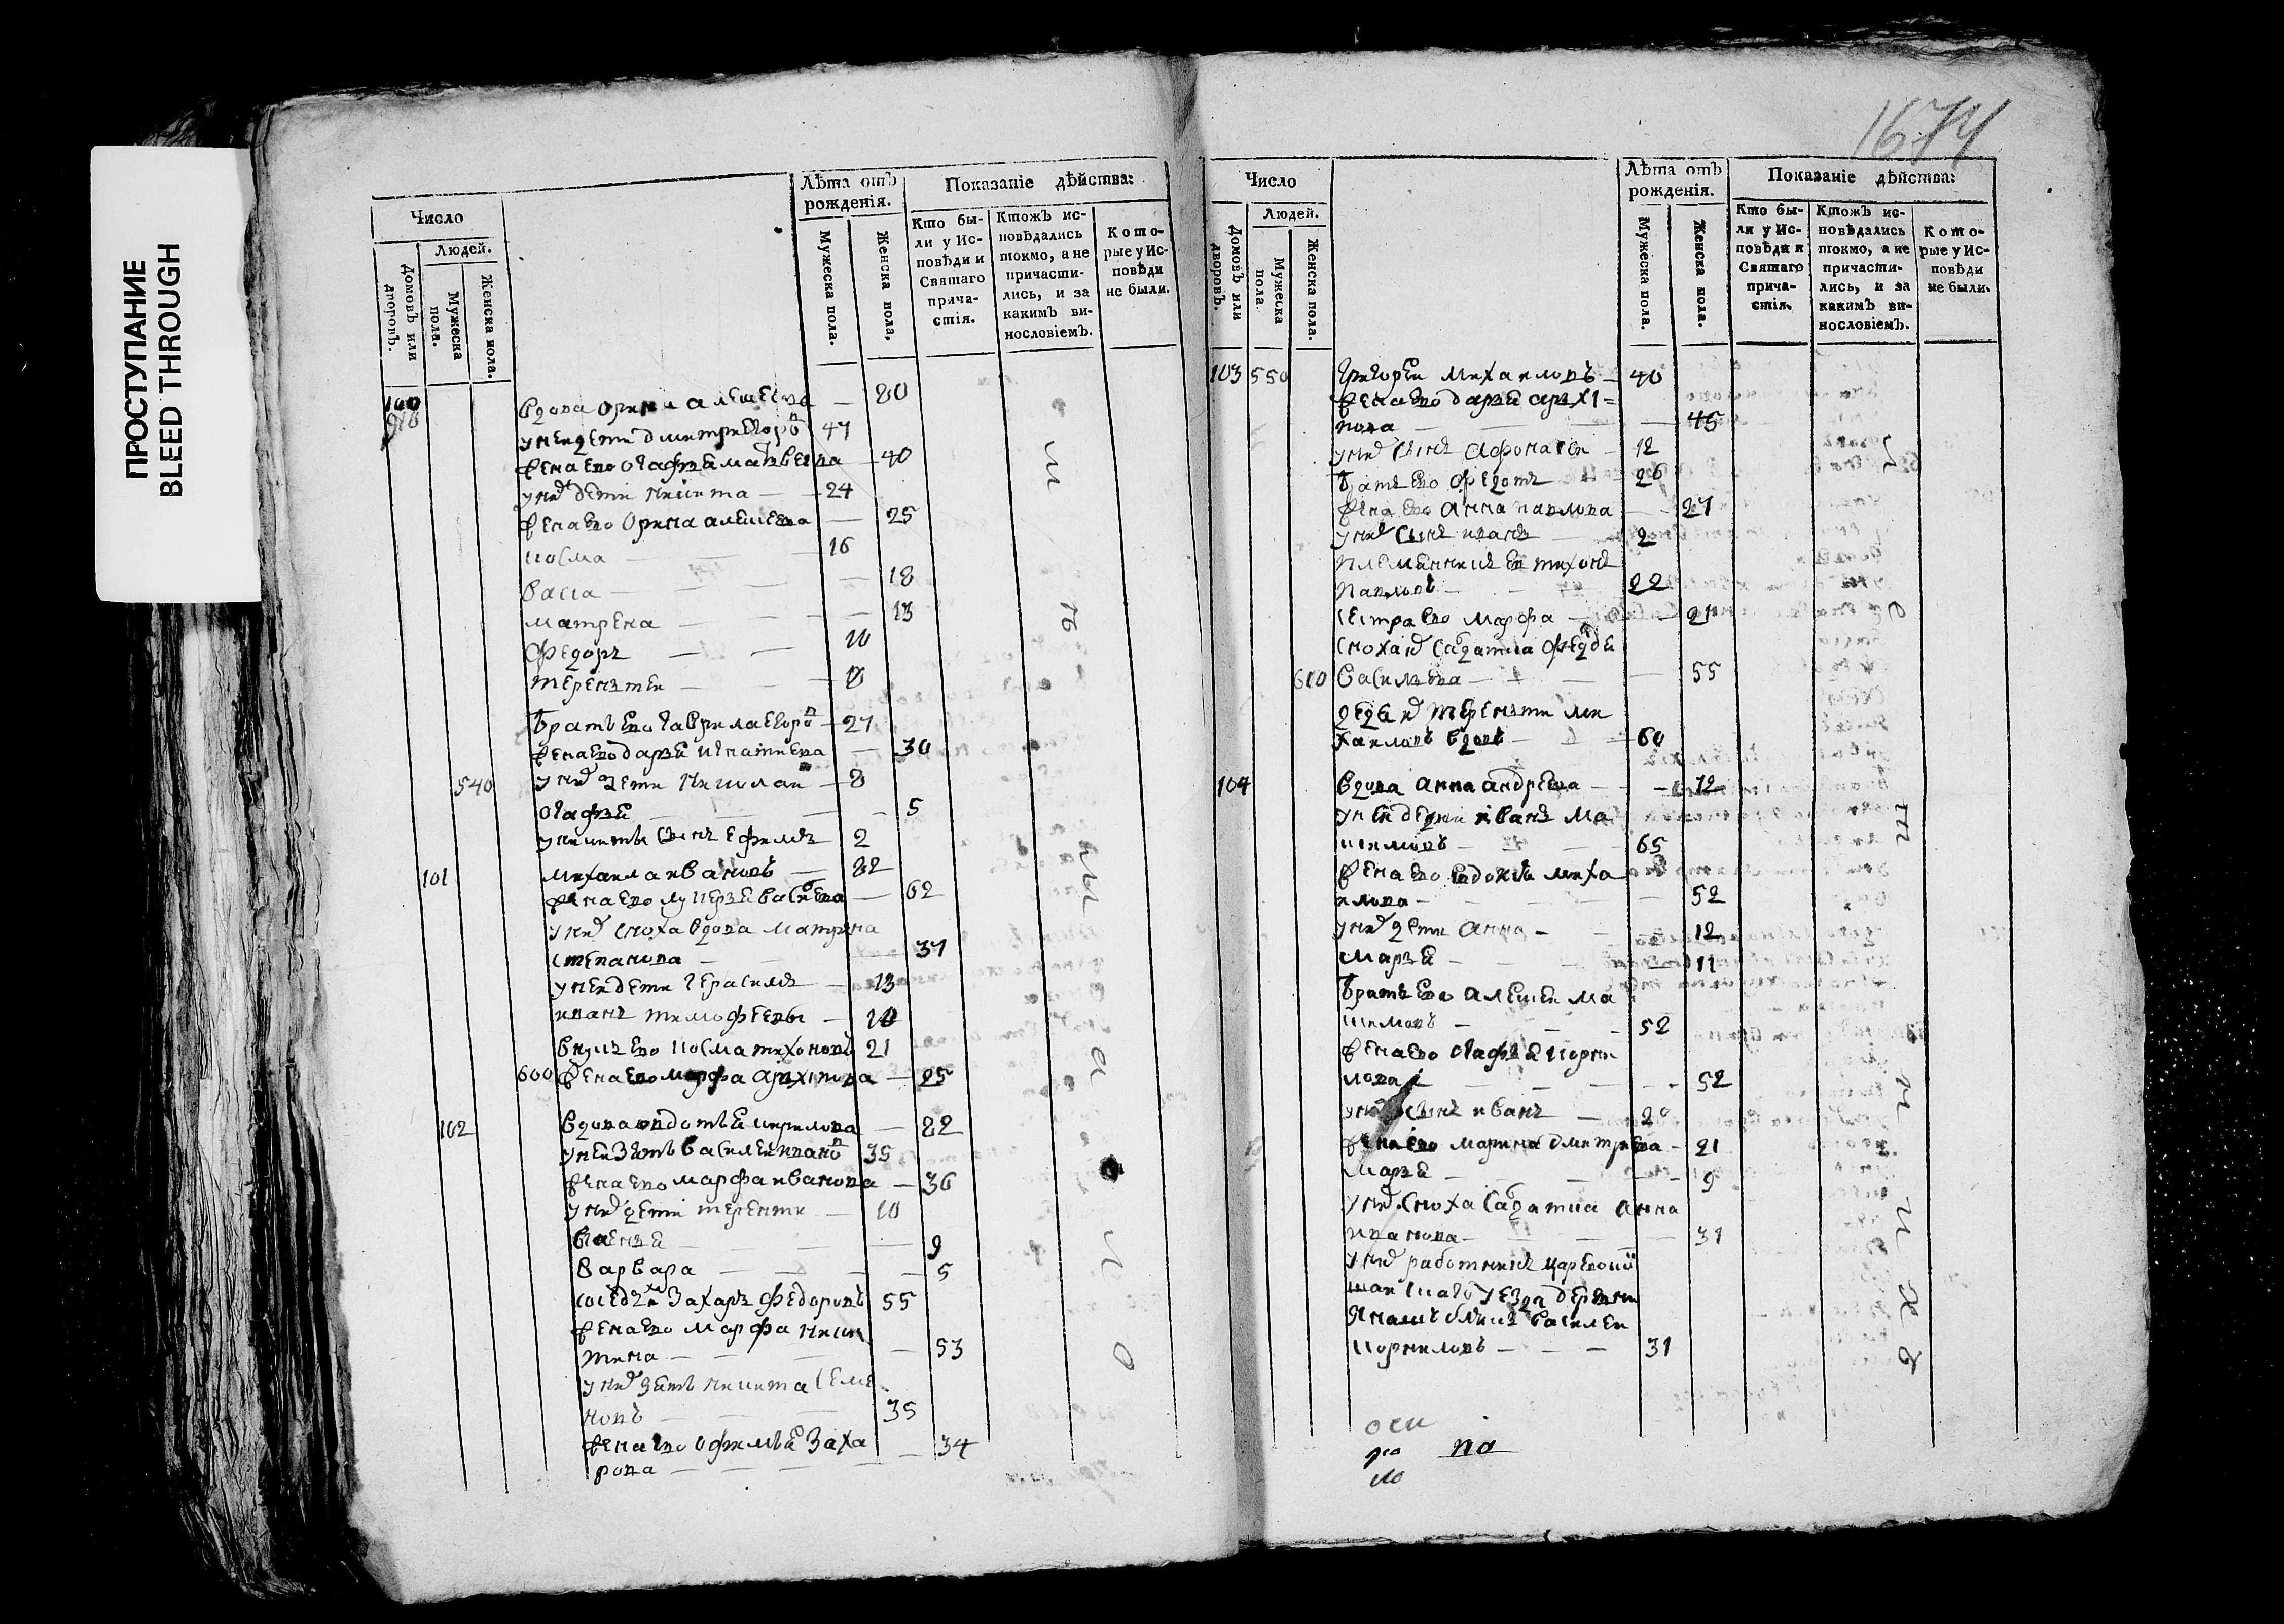 ПРОСТУПАНИЕ
BLEED THROUGH
1674
Число
Людей.
Домовъ или дворовъ.
Мужеска пола.
Женска пола.
Лѣта отъ рожденія.
Мужеска пола.
Женска пола.
Показаніе дѣйства:
Кто бы-
ли у Ис-
повѣди и
Святаго
прича-
стія.
Ктожъ ис-
повѣдались
токмо, а не
причасти-
лись, и за
какимъ ви-
нословіемъ.
К о т о-
рые у Ис-
повѣди
не были.
100 вдова орина алексеева — 80
у неи дети дмитреи егоровъ 47
жена ево огафья матвеева — 40
у них дети никита — 24
жена ево орина алексеева — 25
косма — 16
васа — 18
матрена — 13
федоръ — 10
терентеи — 8
братъ ево гаврила егоровъ — 27
жена ево дарья игнатиева — 30
540 у них дети николаи — 8
огафья — 5
у никиты сынъ ефимъ 2
101 михаила ивановъ — 82
жена ево лукерья васильева — 62
у них сноха вдова матрена
степанова — 37
у неи дети герасимъ — 13
иванъ тимофеевы — 10
внукъ ево косма тихоновъ 21
600 жена ево марфа архипова — 25
102 вдова овдотья кирилова — 82
у неи зеть василеи ивановъ 35
жена ево марфа иванова — 36
у них дети терентии — 10
 — 9
варвара — 5
захаръ федоровъ 55
жена ево марфа ники
тина — 53
у них зеть никита семе
новъ — 35
жена ево офимья заха — 34
рова —
Число
Людей.
Домовъ или дворовъ.
Мужеска пола.
Женска пола.
Лѣта отъ рожденія.
Мужеска пола.
Женска пола.
Показаніе дѣйства:
Кто бы-
ли у Ис-
повѣди и
Святаго
прича-
стія.
Ктожъ ис-
повѣдались
токмо, а не
причасти-
лись, и за
какимъ ви-
нословіемъ.
К о т о-
рые у Ис-
повѣди
не были.
103 550 григореи михаиловъ — 40
жена ево дарья архи=
пова — 45
у них сынъ афонасеи — 12
братъ ево федотъ 26
жена ево анна павлова — 27
у них сынъ иванъ — 2
племянникъ ей тихонъ
павловъ — 22
сестра ево марфа — 21
сноха их салдатка
610 васильева — 55
дедъ их терентии ми
хаиловъ вдовъ — 60
104 вдова анна андреева — 72
у неи дети иванъ ма
кимовъ — 65
жена ево евдокия миха
илова — 52
у них дети анна — 12
марья — 11
братъ ево алексеи ма
кимовъ — 52
жена ево огафья корни
лова — 52
у них сынъ иванъ — 20
жена ево марина дмитриева — 21
марья — 9
у них сноха салдатка анна
иванова — 31
у них работникъ царевокок
шаискаго уезда деревни
василеи
корниловъ — 31